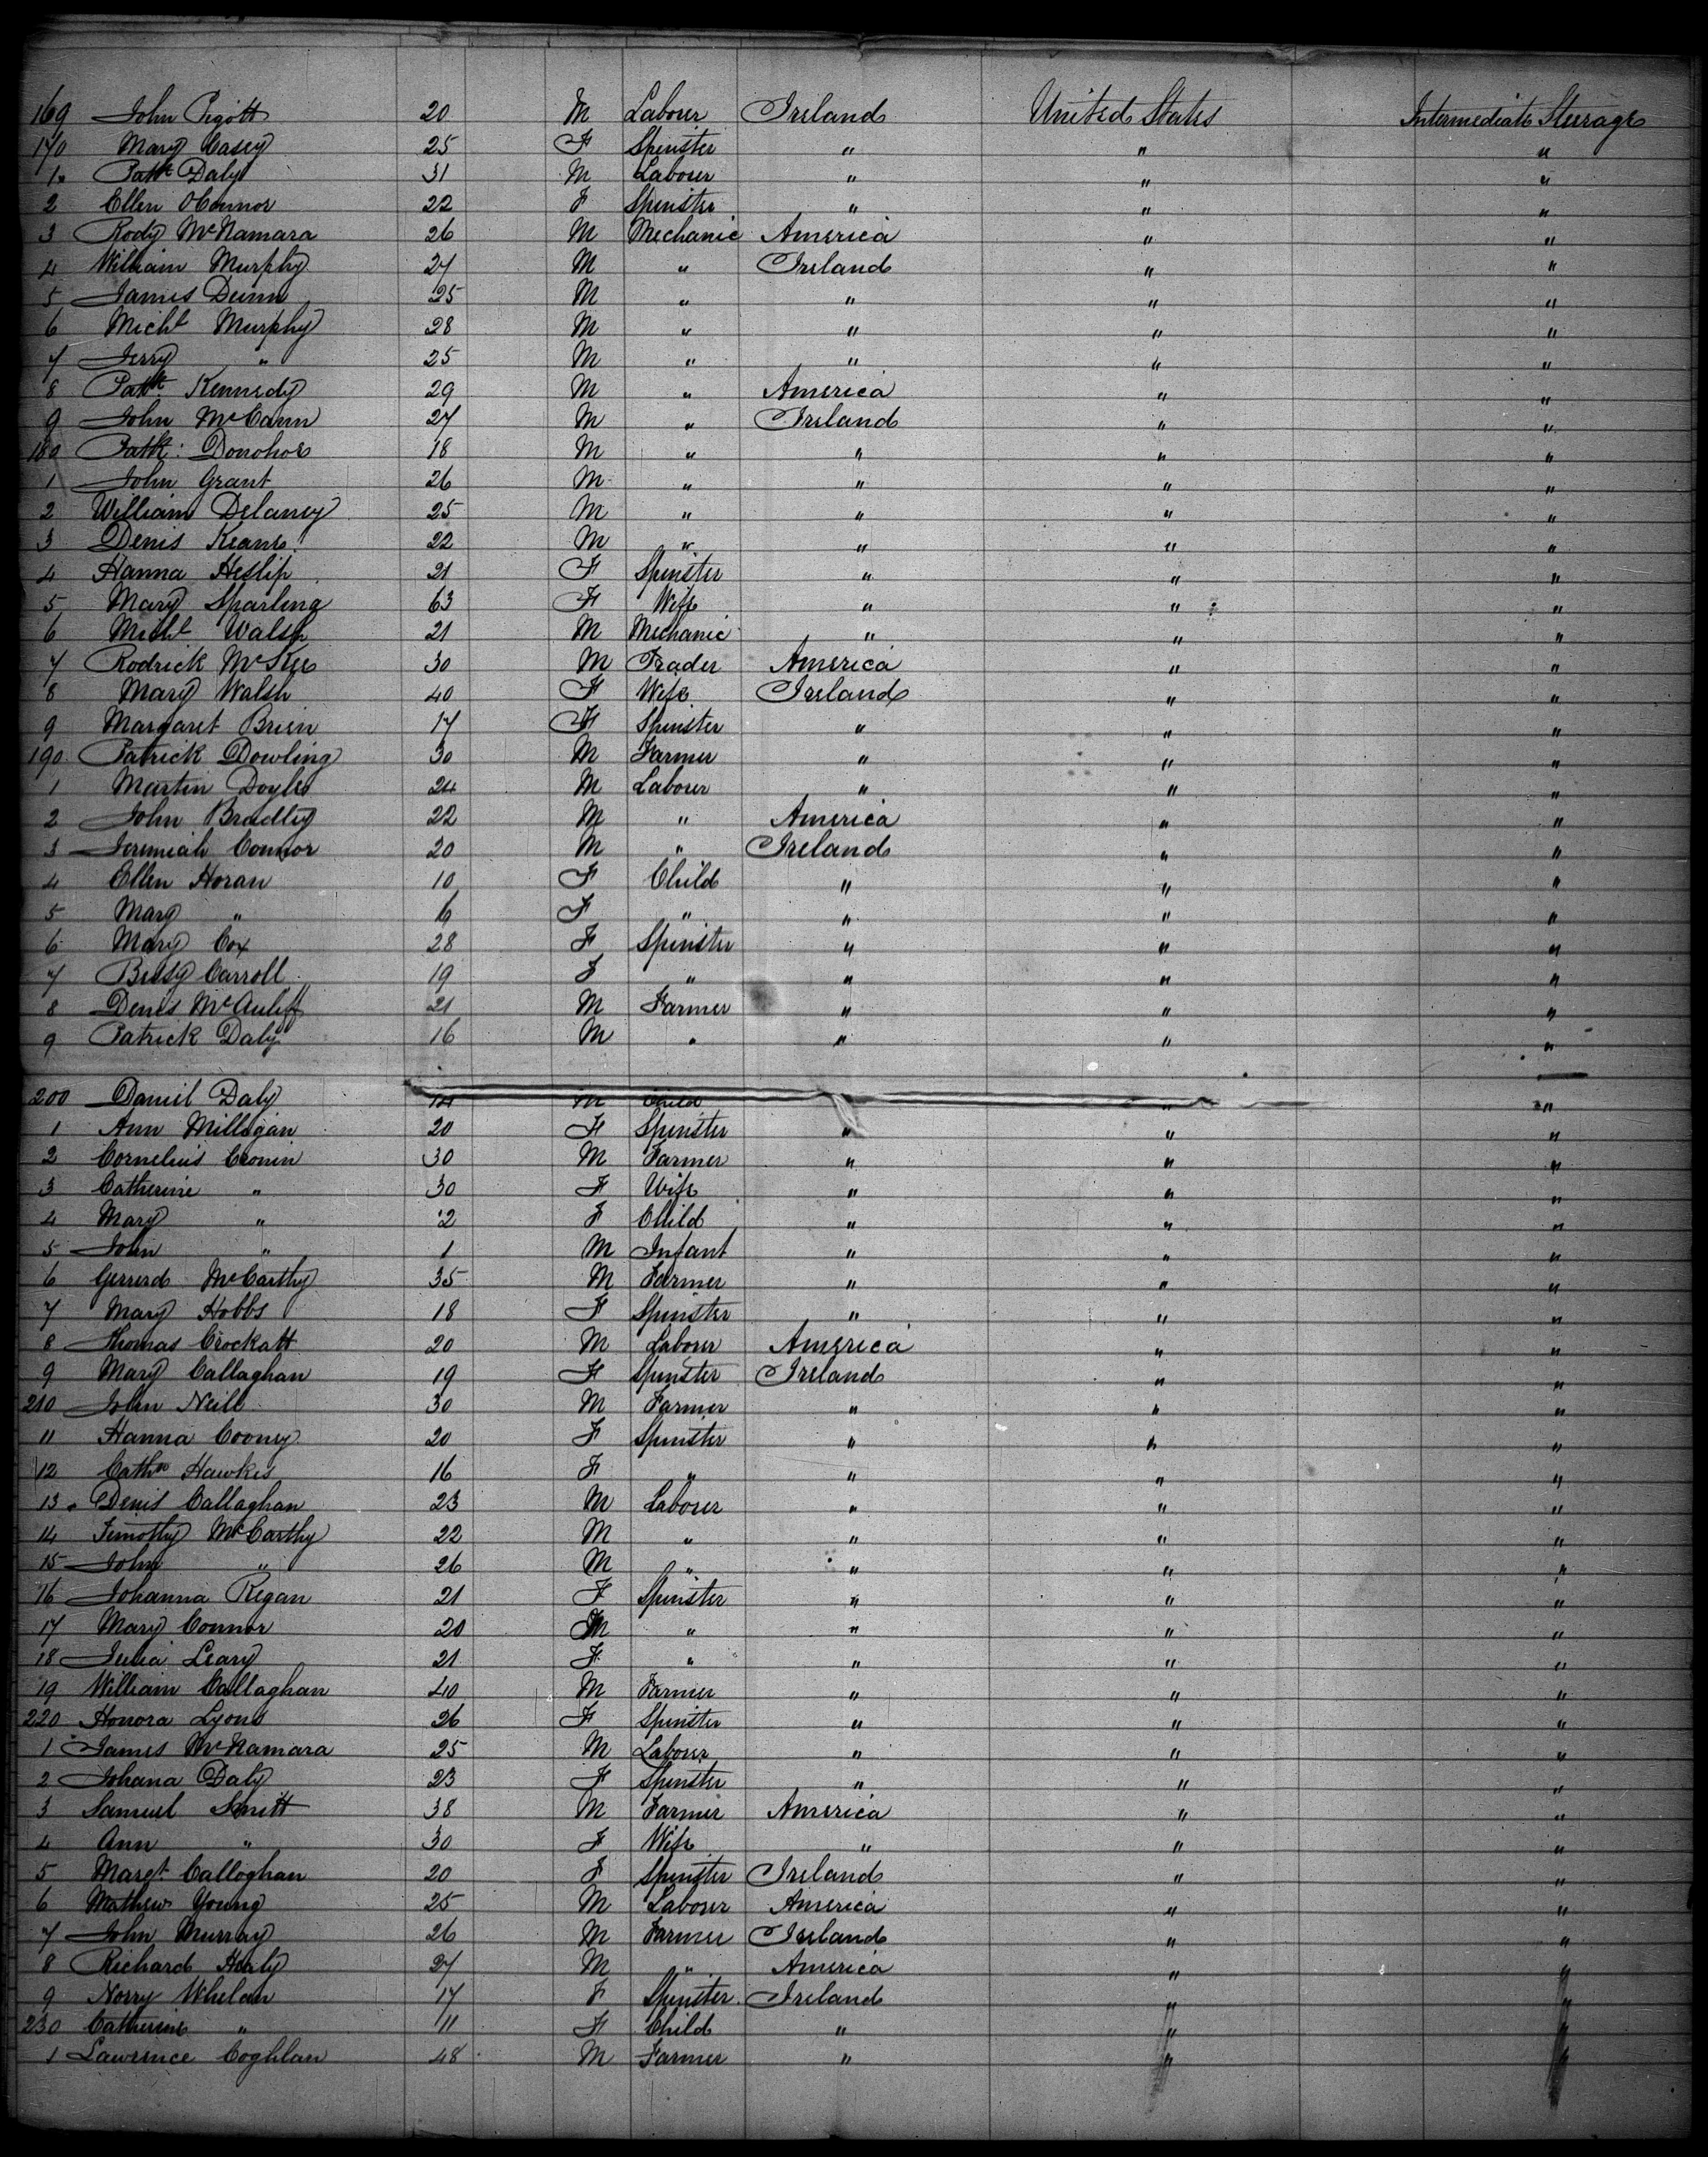 169 John Pigott 20 M Laborer Ireland United States Intermediate Steerage
170 Mary Casey 25 F Spinster " " "
1 Patk Daly 31 M Laborer " " "
2 Ellen OConnor 22 F Spinster " " "
3 Rody McNamara 26 M Mechanic America " "
4 William Murphy 27 M " Ireland " "
5 James Dunn 25 M " " " "
6 Michl Murphy 28 M " " " "
7 Jerry " 25 M " " " "
8 Patk Kennedy 29 M " America " "
9 John McCann 27 M " Ireland " "
180 Patk: Donohoe 18 M " " " "
1 John Grant 26 M " " " "
2 William Delaney 25 M " " " "
3 Denis Keane 22 M " " " "
4 Hanna Heslip 21 F Spinster " " "
5 Mary Sparling 63 F Wife " " "
6 Michl Walsh 21 M Mechanic " " "
7 Rodrick McKee 30 M Trader America " "
8 Mary Walsh 40 F Wife Ireland " "
9 Margaret Brien 17 F Spinster " " "
190 Patrick Dowling 30 M Farmer " " "
1 Martin Doyle 24 M Laborer " " "
2 John Bradley 22 M " America " "
3 Jeremiah Connor 20 M " Ireland " "
4 Ellen Horan 10 F Child " " "
5 Mary " 6 F " " " "
6 Mary Cox 28 F Spinster " " "
7 Betsy Carroll 19 F " " " "
8 Denis McAuliff 21 M Farmer " " "
9 Patrick Daly 16 M " " " "
200 Daniel Daly M Child " "
1 Ann Milligan 20 F Spinster " " "
2 Cornelius Cronin 30 M Farmer " " "
3 Catherine " 30 F Wife " " "
4 Mary " 2 F Child " " "
5 John " 1 M Infant " " "
6 Gerrerd McCarthy 35 M Farmer " " "
7 Mary Hobbs 18 F Spinster " " "
8 Thomas Crockatt 20 M Laborer America " "
9 Mary Callaghan 19 F Spinster Ireland " "
210 John Neill 30 M Farmer " " "
11 Hanna Cooney 20 F Spinster " " "
12 Cathne Hawkes 16 F " " " "
13 Denis Callaghan 23 M Laborer " " "
14 Timothy McCarthy 22 M " " " "
15 John " 26 M " " " "
16 Johanna Regan 21 F Spinster " " "
17 Mary Connor 20 " " " "
18 Julia Leary 21 F " " " "
19 William Callaghan 40 M Farmer " " "
220 Honora Lyons 26 F Spinster " " "
1 James McNamara 25 M Laborer " " "
2 Johana Daly 23 F Spinster " " "
3 Samuel Smitt 38 M Farmer America " "
4 Ann " 30 F Wife " " "
5 Margt Calloghan 20 F Spinster Ireland " "
6 Mathew Young 25 M Laborer America " "
7 John Murray 26 M Farmer Ireland " "
8 Richard Healy 27 M " America " "
9 Norry Whelan 17 F Spinster Ireland " "
230 Catherine " 11 F Child " " "
1 Lawrence Coghlan 48 M Farmer " " "